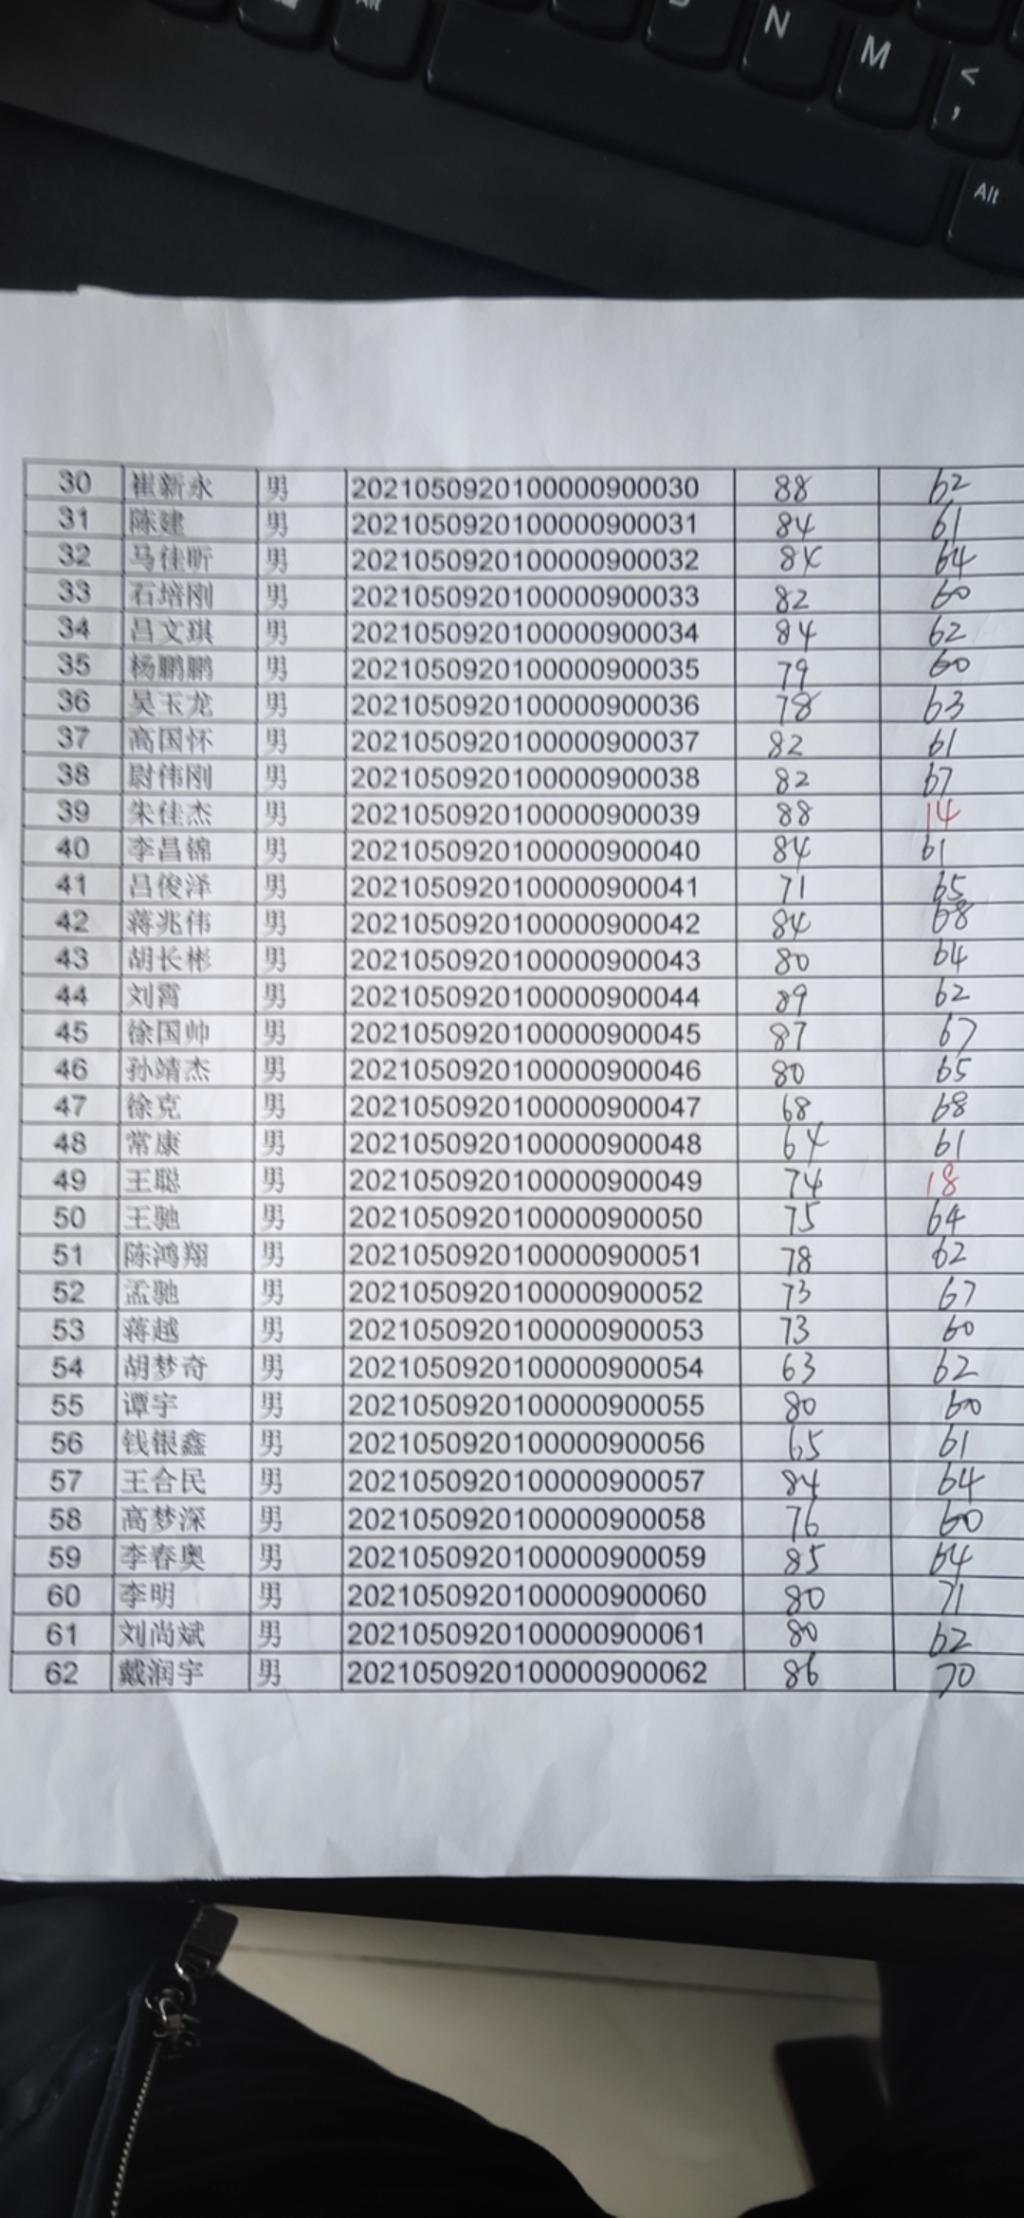 Alt
N
M
<
,
Alt
30 崔新永 男 2021050920100000900030 88 62
31 陈建 男 2021050920100000900031 84 61
32 马佳昕 男 2021050920100000900032 84 64
33 石培刚 男 2021050920100000900033 82 60
34 吕文琪 男 2021050920100000900034 84 62
35 杨鹏鹏 男 2021050920100000900035 79 60
36 吴玉龙 男 2021050920100000900036 78 63
37 高国怀 男 2021050920100000900037 82 61
38 尉伟刚 男 2021050920100000900038 82 67
39 朱佳杰 男 2021050920100000900039 88 14
40 李昌锦 男 2021050920100000900040 84 61
41 吕俊泽 男 2021050920100000900041 71 65
42 蒋兆伟 男 2021050920100000900042 84 68
43 胡长彬 男 2021050920100000900043 80 64
44 刘霄 男 2021050920100000900044 89 62
45 徐国帅 男 2021050920100000900045 87 67
46 孙靖杰 男 2021050920100000900046 80 65
47 徐克 男 2021050920100000900047 68 68
48 常康 男 2021050920100000900048 64 61
49 王聪 男 2021050920100000900049 74 18
50 王驰 男 2021050920100000900050 75 64
51 陈鸿翔 男 2021050920100000900051 78 62
52 孟驰 男 2021050920100000900052 73 67
53 蒋越 男 2021050920100000900053 73 60
54 胡梦奇 男 2021050920100000900054 63 62
55 谭宇 男 2021050920100000900055 80 60
56 钱银鑫 男 2021050920100000900056 65 61
57 王合民 男 2021050920100000900057 84 64
58 高梦深 男 2021050920100000900058 76 60
59 李春奥 男 2021050920100000900059 85 64
60 李明 男 2021050920100000900060 80 71
61 刘尚斌 男 2021050920100000900061 80 62
62 戴润宇 男 2021050920100000900062 86 70